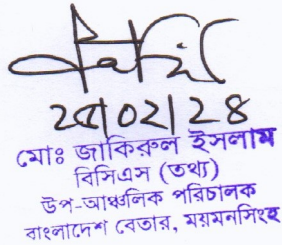 ২৫/০২/২৪
মোঃ জাকিরুল ইসলাম
বিসিএস (তথ্য)
উপ-আঞ্চলিক পরিচালক
বাংলাদেশ বেতার, ময়মনসিংহ